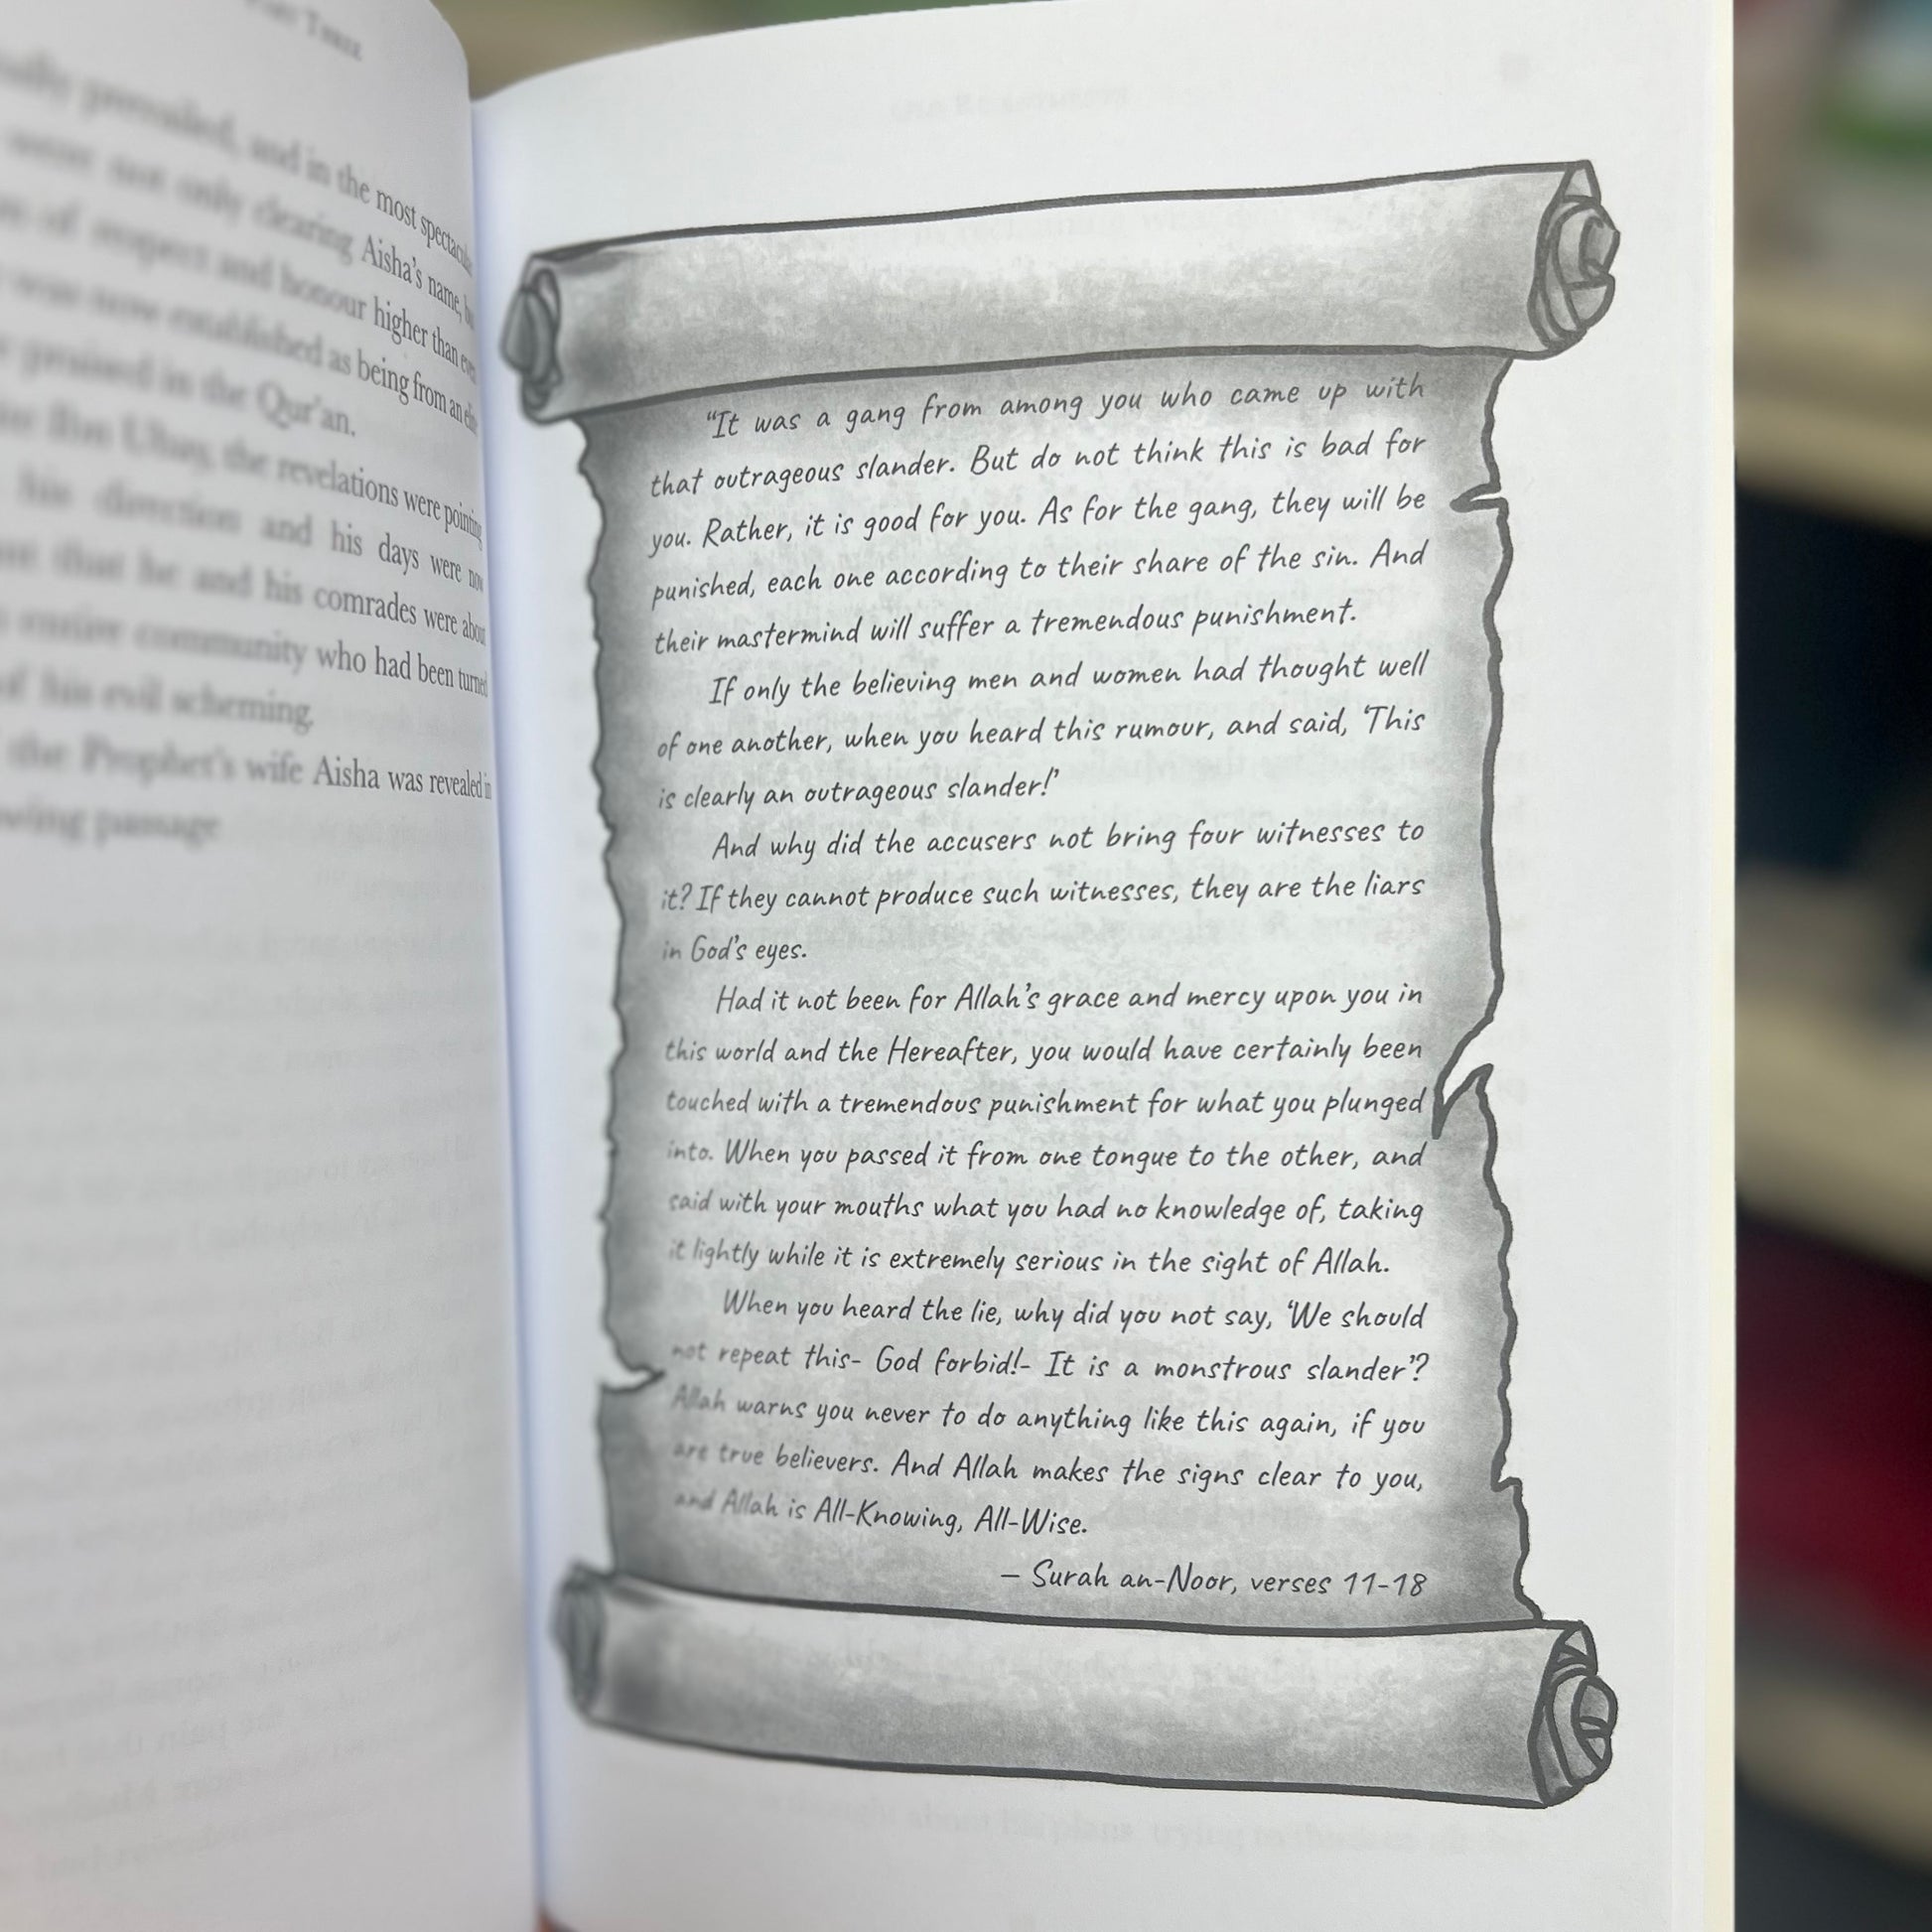 ually prevailed, and in the most spectacul
were not only clearing Aisha's name, bu
of respect and honour higher than ever
was now established as being from an elite
praised in the Qur'an.
Ibn Ubay, the revelations were pointing
his direction and his days were now
that he and his comrades were about
entire community who had been turned
of his evil scheming.
the Prophet's wife Aisha was revealed in
owing passage
"It was a gang from among you who came up with
that outrageous slander. But do not think this is bad for
you. Rather, it is good for you. As for the gang, they will be
punished, each one according to their share of the sin. And
their mastermind will suffer a tremendous punishment.
If only the believing men and women had thought well
of one another, when you heard this rumour, and said, 'This
is clearly an outrageous slander!'
And why did the accusers not bring four witnesses to
it? If they cannot produce such witnesses, they are the liars
in God's eyes.
Had it not been for Allah's grace and mercy upon you in
this world and the Hereafter, you would have certainly been
touched with a tremendous punishment for what you plunged
into. When you passed it from one tongue to the other, and
said with your mouths what you had no knowledge of, taking
it lightly while it is extremely serious in the sight of Allah.
When you heard the lie, why did you not say, 'We should
not repeat this- God forbid!- It is a monstrous slander'?
Allah warns you never to do anything like this again, if you
are true believers. And Allah makes the signs clear to you,
and Allah is All-Knowing, All-Wise.
– Surah an-Noor, verses 11-18